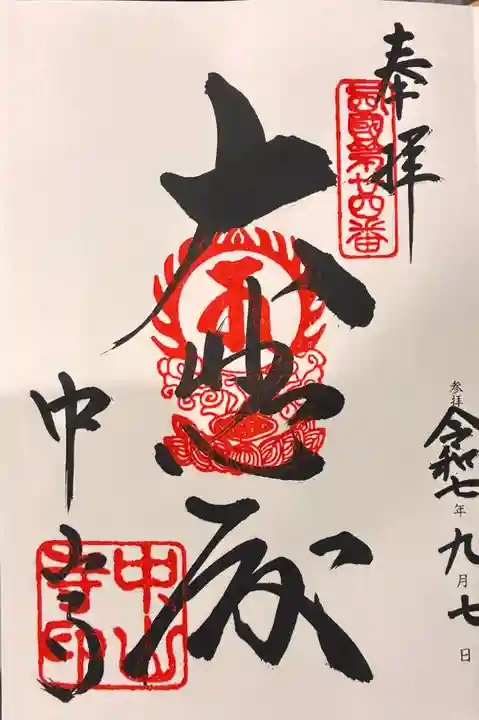 奉拝
西国第廿四番
大悲殿
中山寺
中山寺印
参拝
令和七年九月七日